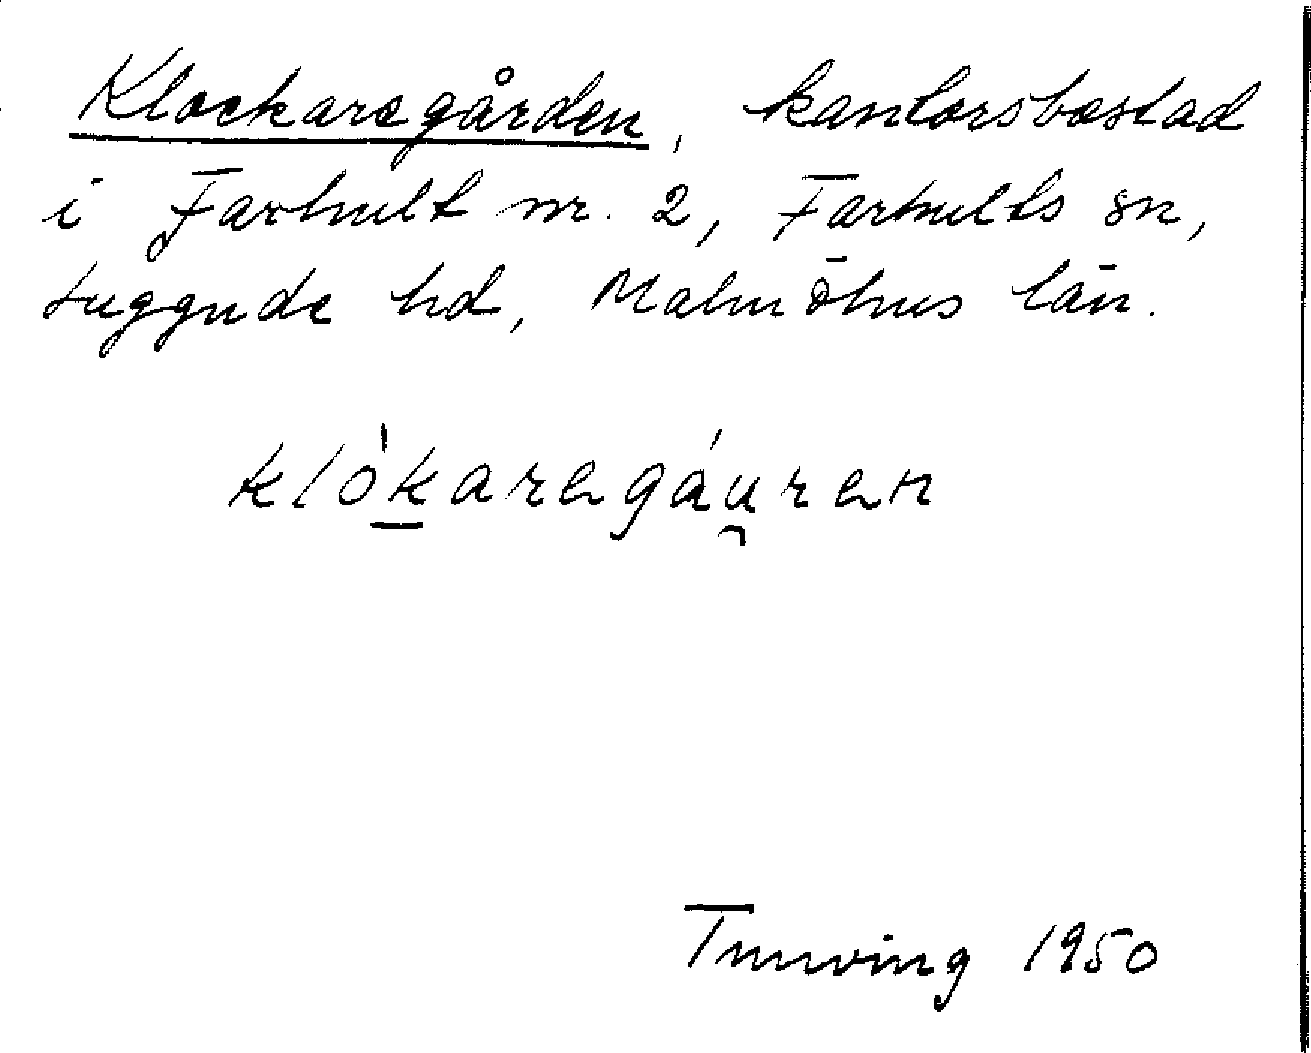 Klockaregården, kantorsbostad
i Farhult nr. 2, Farhults sn,
Luggude hd, Malmöhus län.
klòkaregáu̯ren
1950